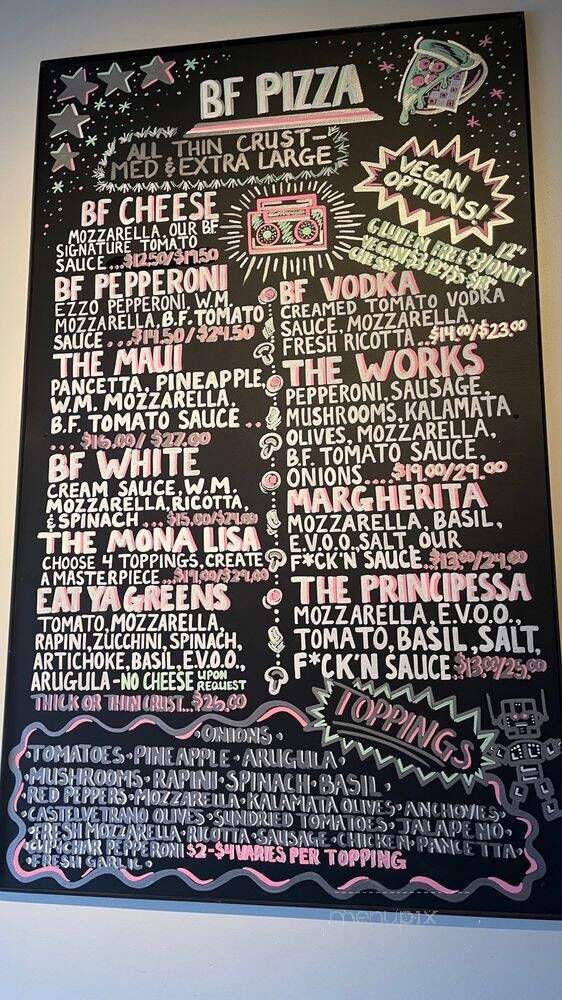 BF PIZZA
ALL THIN CRUST-
MED & EXTRA LARGE
VEGAN
OPTIONS!
12"
GLUTEN FREE $3/ONLY
VEGAN $3
CHEESE
BF CHEESE
MOZZARELLA, OUR BF
SIGNATURE TOMATO
SAUCE...$12.50/$19.50
BF PEPPERONI
EZZO PEPPERONI, W.M.
MOZZARELLA, B.F. TOMATO
SAUCE ...$14.50/$24.50
THE MAUI
PANCETTA, PINEAPPLE,
W.M. MOZZARELLA,
B.F. TOMATO SAUCE ..
... $16.00/ $27.00
BF WHITE
CREAM SAUCE, W.M.
MOZZARELLA, RICOTTA,
& SPINACH ...$15.00/$24.00
THE MONA LISA
CHOOSE 4 TOPPINGS, CREATE
A MASTERPIECE...$19.00/$29.00
EAT YA GREENS
TOMATO, MOZZARELLA,
RAPINI, ZUCCHINI, SPINACH,
ARTICHOKE, BASIL, E.V.O.O.,
ARUGULA - NO CHEESE UPON
REQUEST
THICK OR THIN CRUST...$26.00
BF VODKA
CREAMED TOMATO VODKA
SAUCE, MOZZARELLA,
FRESH RICOTTA...$14.00/$23.00
THE WORKS
PEPPERONI, SAUSAGE,
MUSHROOMS, KALAMATA
OLIVES, MOZZARELLA,
B.F. TOMATO SAUCE,
ONIONS....$19.00/29.00
MARGHERITA
MOZZARELLA, BASIL,
E.V.O.O., SALT, OUR
F*CK'N SAUCE..$13.00/24.00
THE PRINCIPESSA
MOZZARELLA, E.V.O.O.,
TOMATO, BASIL, SALT,
F*CK'N SAUCE..$13.00/25.00
TOPPINGS
• ONIONS •
• TOMATOES • PINEAPPLE • ARUGULA •
• MUSHROOMS • RAPINI • SPINACH • BASIL •
RED PEPPERS • MOZZARELLA • KALAMATA OLIVES • ANCHOVIES •
CASTELVETRANO OLIVES • SUNDRIED TOMATOES • JALAPENO •
• FRESH MOZZARELLA • RICOTTA • SAUSAGE • CHICKEN • PANCETTA •
CUP & CHAR PEPPERONI $2-$4 VARIES PER TOPPING
• FRESH GARLIC •
menupix